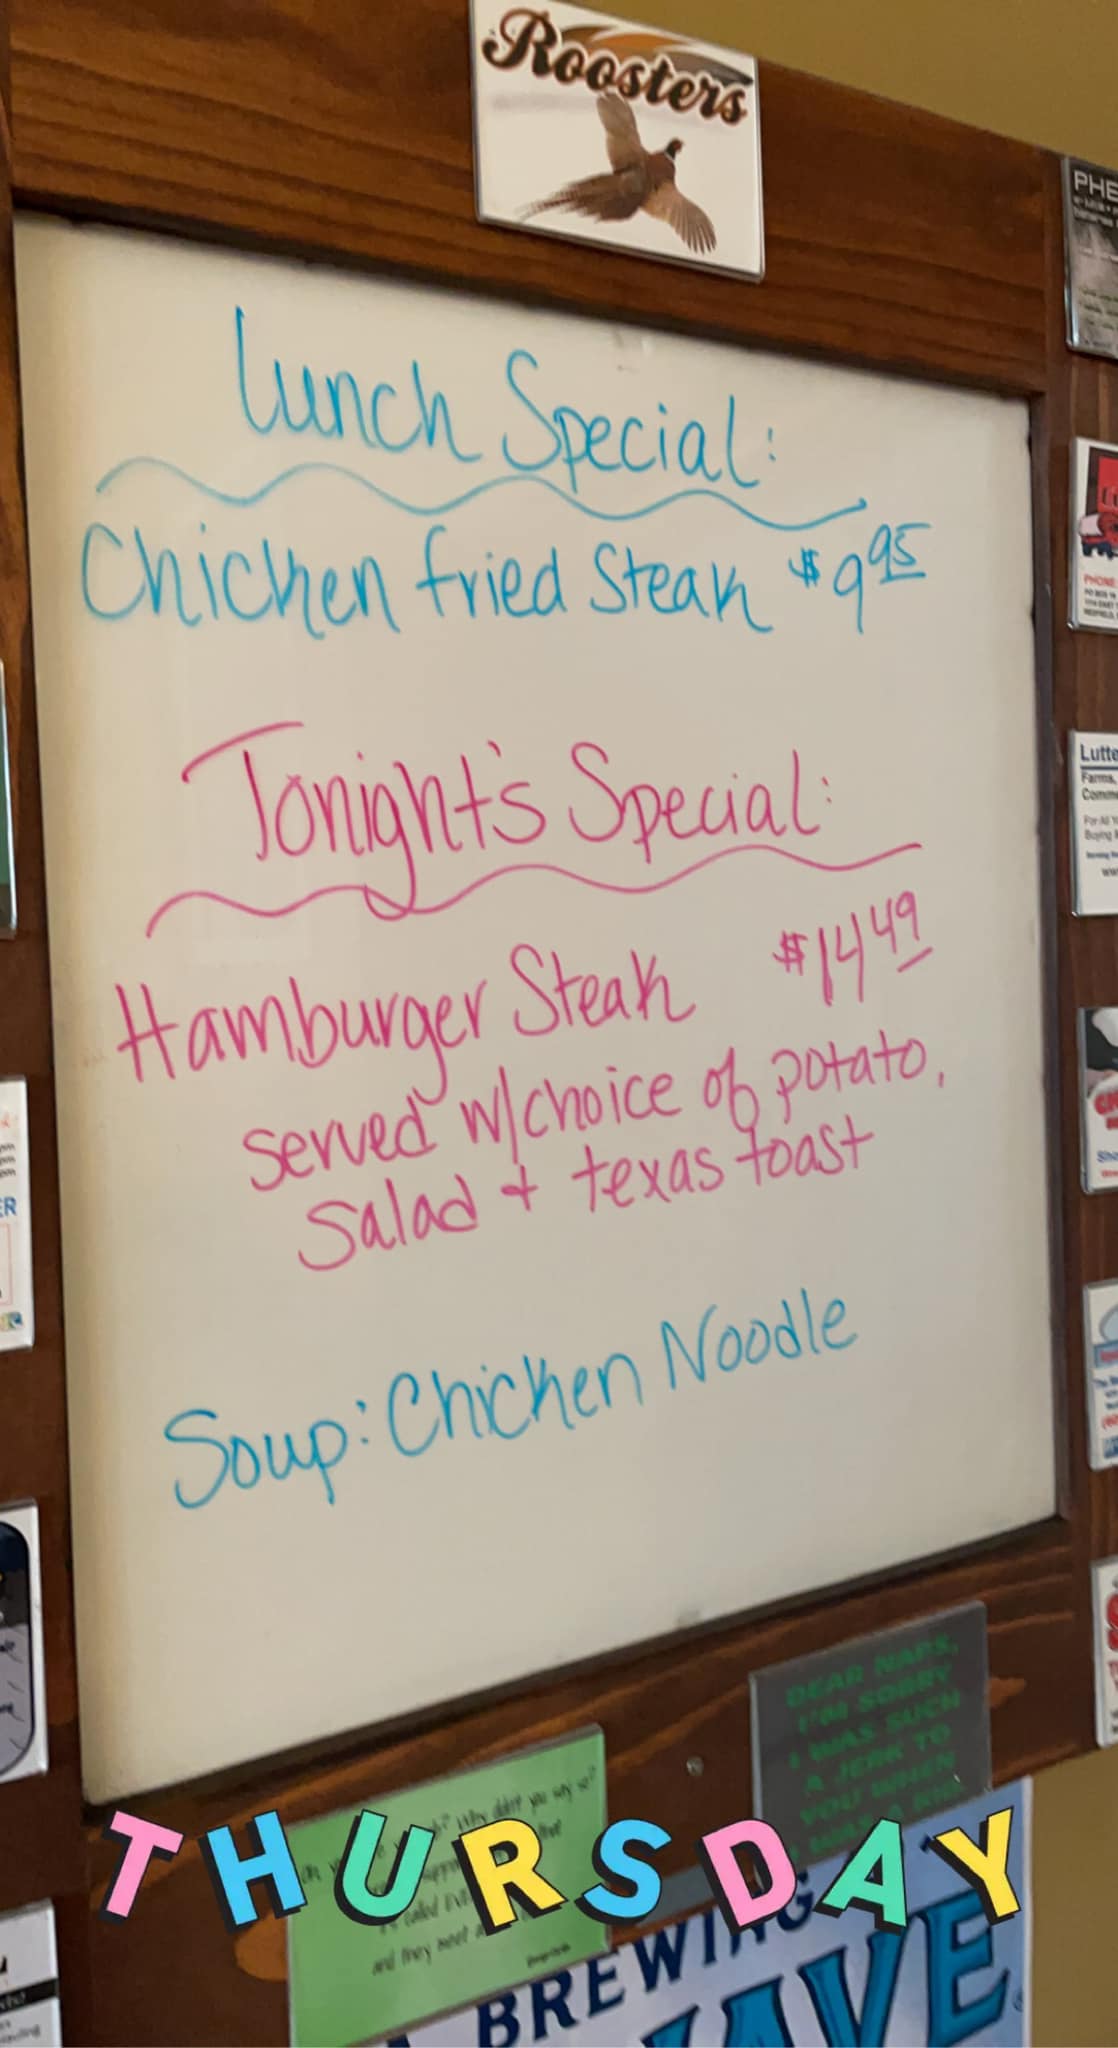 Roosters
Lunch Special:
Chicken fried Steak $9.95
Tonight's Special:
Hamburger Steak $14.49
served w/choice of potato,
salad + texas toast
Soup: Chicken Noodle
PHE
PHONE
Lutte
Farms,
Comme
For All Y
Buying
DEAR NAPS,
I'M SORRY
I WAS SUCH
A JERK TO
YOU WHEN
I WAS A KID
why didn't you say so?
and they meet
THURSDAY
BREWING
AVE